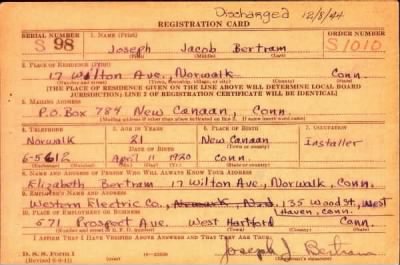 Discharged 12/8/44
REGISTRATION CARD
SERIAL NUMBER
1. NAME (Print)
ORDER NUMBER
S 98
Joseph Jacob Bertram
S 1010
(First) (Middle) (Last)
2. PLACE OF RESIDENCE (Print)
17 Wilton Ave, Norwalk Conn.
(Number and street) (Town, township, village, or city) (County) (State)
[THE PLACE OF RESIDENCE GIVEN ON THE LINE ABOVE WILL DETERMINE LOCAL BOARD
JURISDICTION; LINE 2 OF REGISTRATION CERTIFICATE WILL BE IDENTICAL]
3. MAILING ADDRESS
P.O. Box 784 New Canaan, Conn.
[Mailing address if other than place indicated on line 2. If same insert word same]
4. TELEPHONE
5. AGE IN YEARS
6. PLACE OF BIRTH
7. OCCUPATION
Norwalk 21 New Canaan Installer
DATE OF BIRTH
6-5612 April 11 1920 Conn.
8. NAME AND ADDRESS OF PERSON WHO WILL ALWAYS KNOW YOUR ADDRESS
Elizabeth Bertram 17 Wilton Ave., Norwalk, Conn.
9. EMPLOYER'S NAME AND ADDRESS
Western Electric Co., 135 Wood St., West
Haven, Conn.
10. PLACE OF EMPLOYMENT OR BUSINESS
571 Prospect Ave. West Hartford Conn.
I AFFIRM THAT I HAVE VERIFIED ABOVE ANSWERS AND THAT THEY ARE TRUE.
D. S. S. Form 1
Joseph J. Bertram